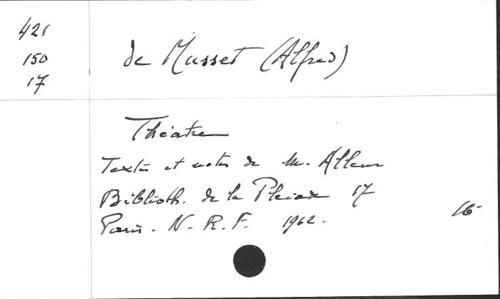 421
150
17
de Musset (Alfred)
Théâtre
Textes et notes de M. Allem
Biblioth. de la Pleiade 17
Paris. N. R. F. 1962.
16-